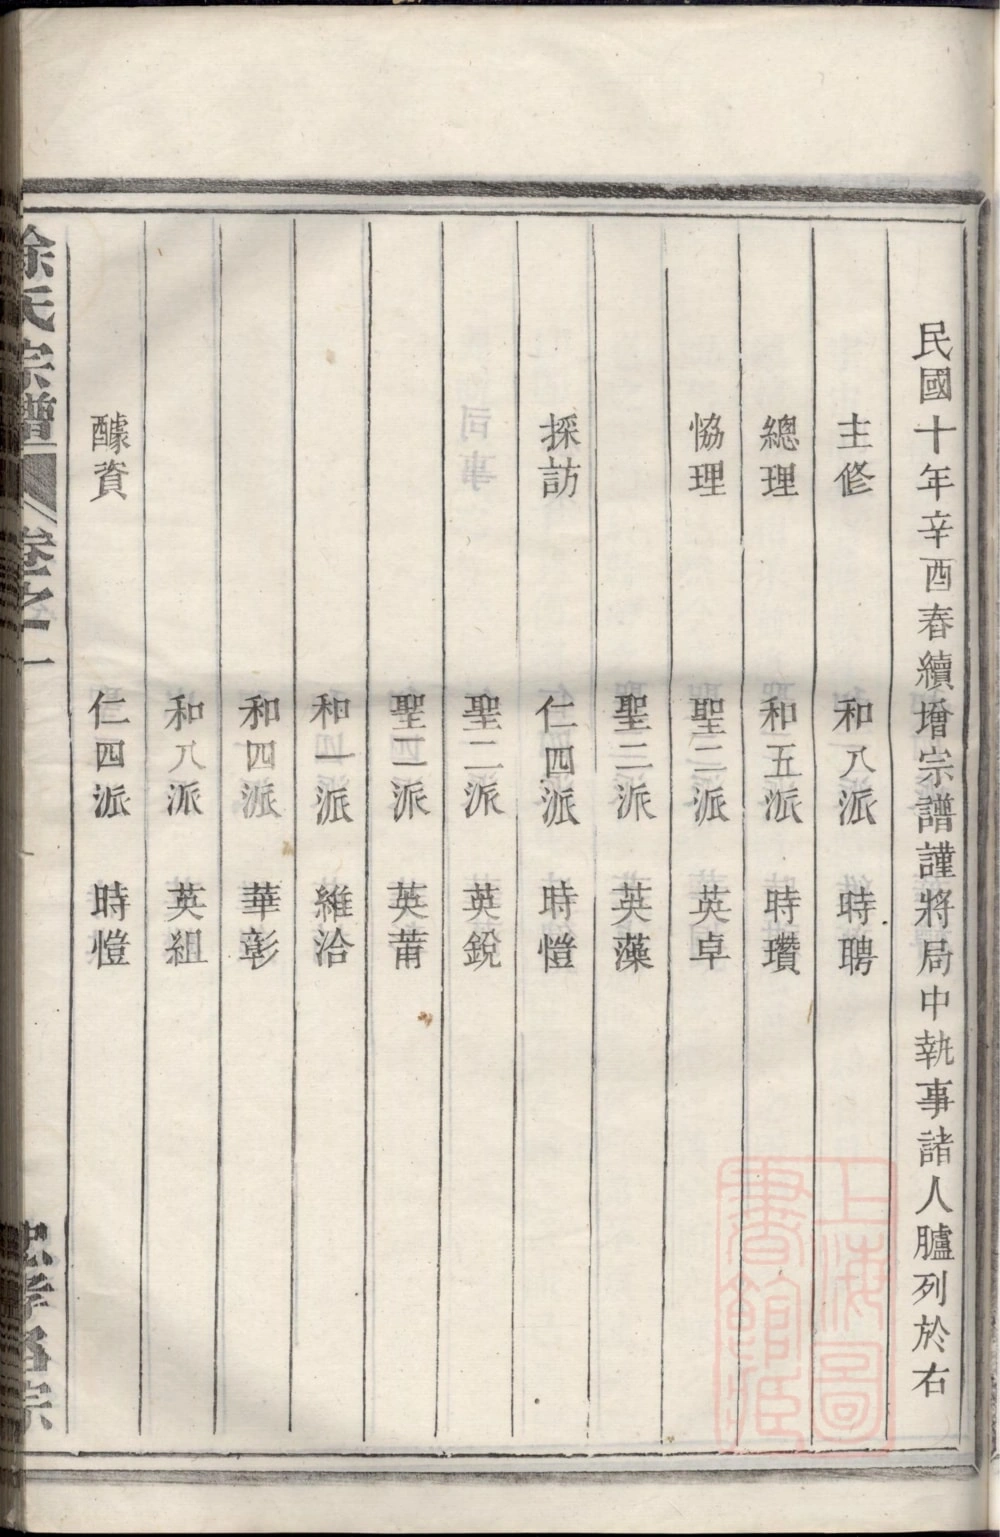 民國十年辛酉春續增宗譜謹將局中執事諸人臚列於右
主修 和八派 時聘
總理 和五派 時瓚
恊理 聖二派 英卓
聖二派 英藻
採訪 仁四派 時愷
聖二派 英銳
聖二派 英莆
和一派 維治
和四派 華彰
和八派 英組
醵資 仁四派 時愷
徐氏宗譜 卷之一 忠孝名宗
上海圖書館藏